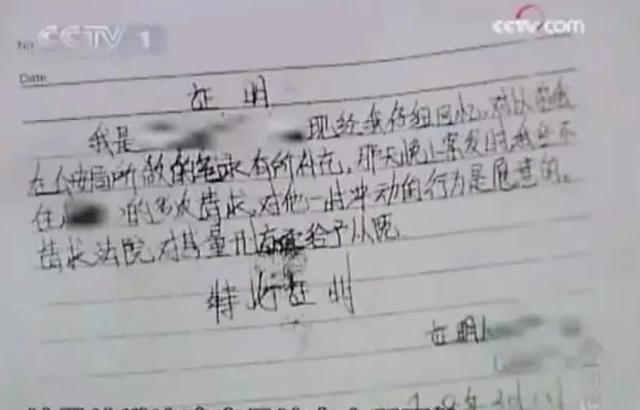 CCTV 1
CCTV.com
No
Date
证明
我是 现经我仔细回忆,对以前我
在公安局所做的笔录有所补充,那天晚上案发时我经不
住 的多次请求,对他一时冲动的行为是愿意的。
请求法院,对其量刑 给予从宽
特此证明
证明人